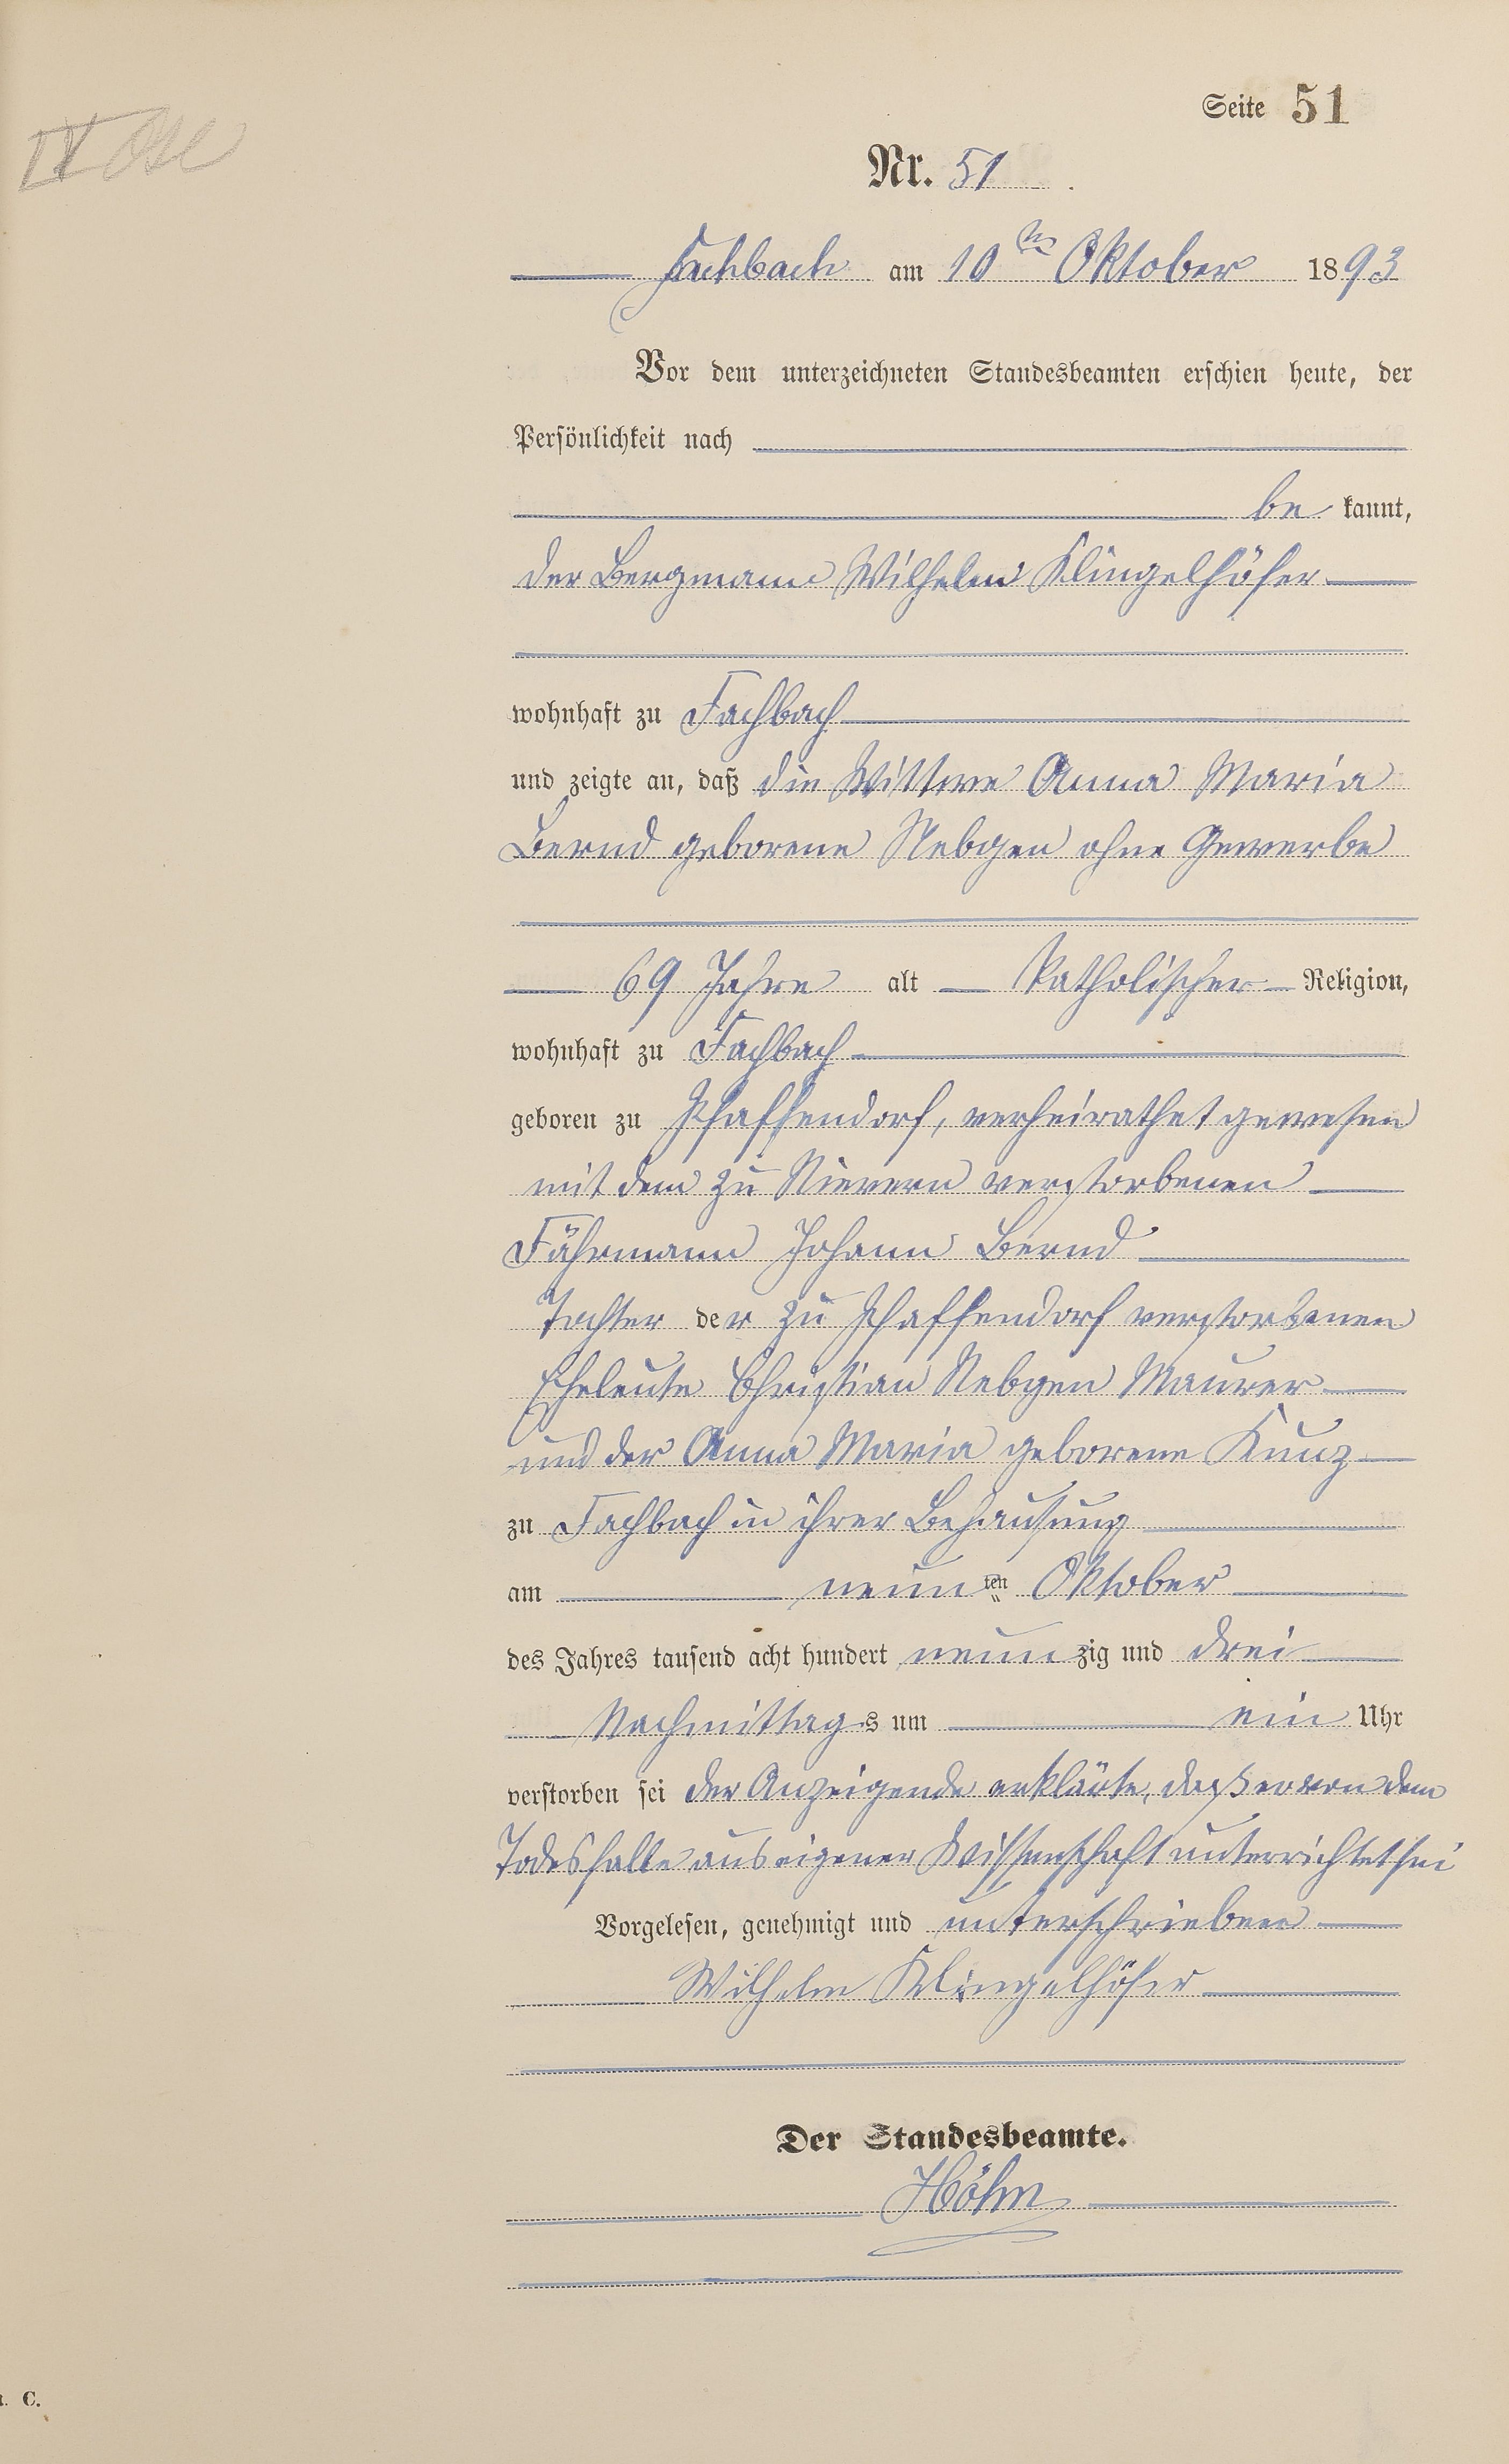 Seite 51
Nr. 51
Fachbach am 10ten Oktober 1893
Vor dem unterzeichneten Standesbeamten erschien heute, der
Persönlichkeit nach
be kannt,
der Bergmann Wilhelm Klingelhöfer
wohnhaft zu Fachbach
und zeigte an, daß die Wittwe Anna Maria
Bernd geborene Nebgen ohne Gewerbe
69 Jahre alt katholischer Religion,
wohnhaft zu Fachbach
geboren zu Pfaffendorf, verheirathet gewesen
mit dem zu Nievern verstorbenen
Fährmann Johann Bernd
Tochter der zu Pfaffendorf verstorbenen
Eheleute Christian Nebgen Maurer
und der Anna Maria geborene Kunz
zu Fachbach in ihrer Behausung
am neunten Oktober
des Jahres tausend acht hundert neunzig und drei
Nachmittags um ein Uhr
verstorben sei der Anzeigende erklärte, daß er von dem
Todesfalle aus eigener Wissenschaft unterrichtet sei
Vorgelesen, genehmigt und unterschrieben
Wilhelm Klingelhöfer
Der Standesbeamte.
Höhn
C.